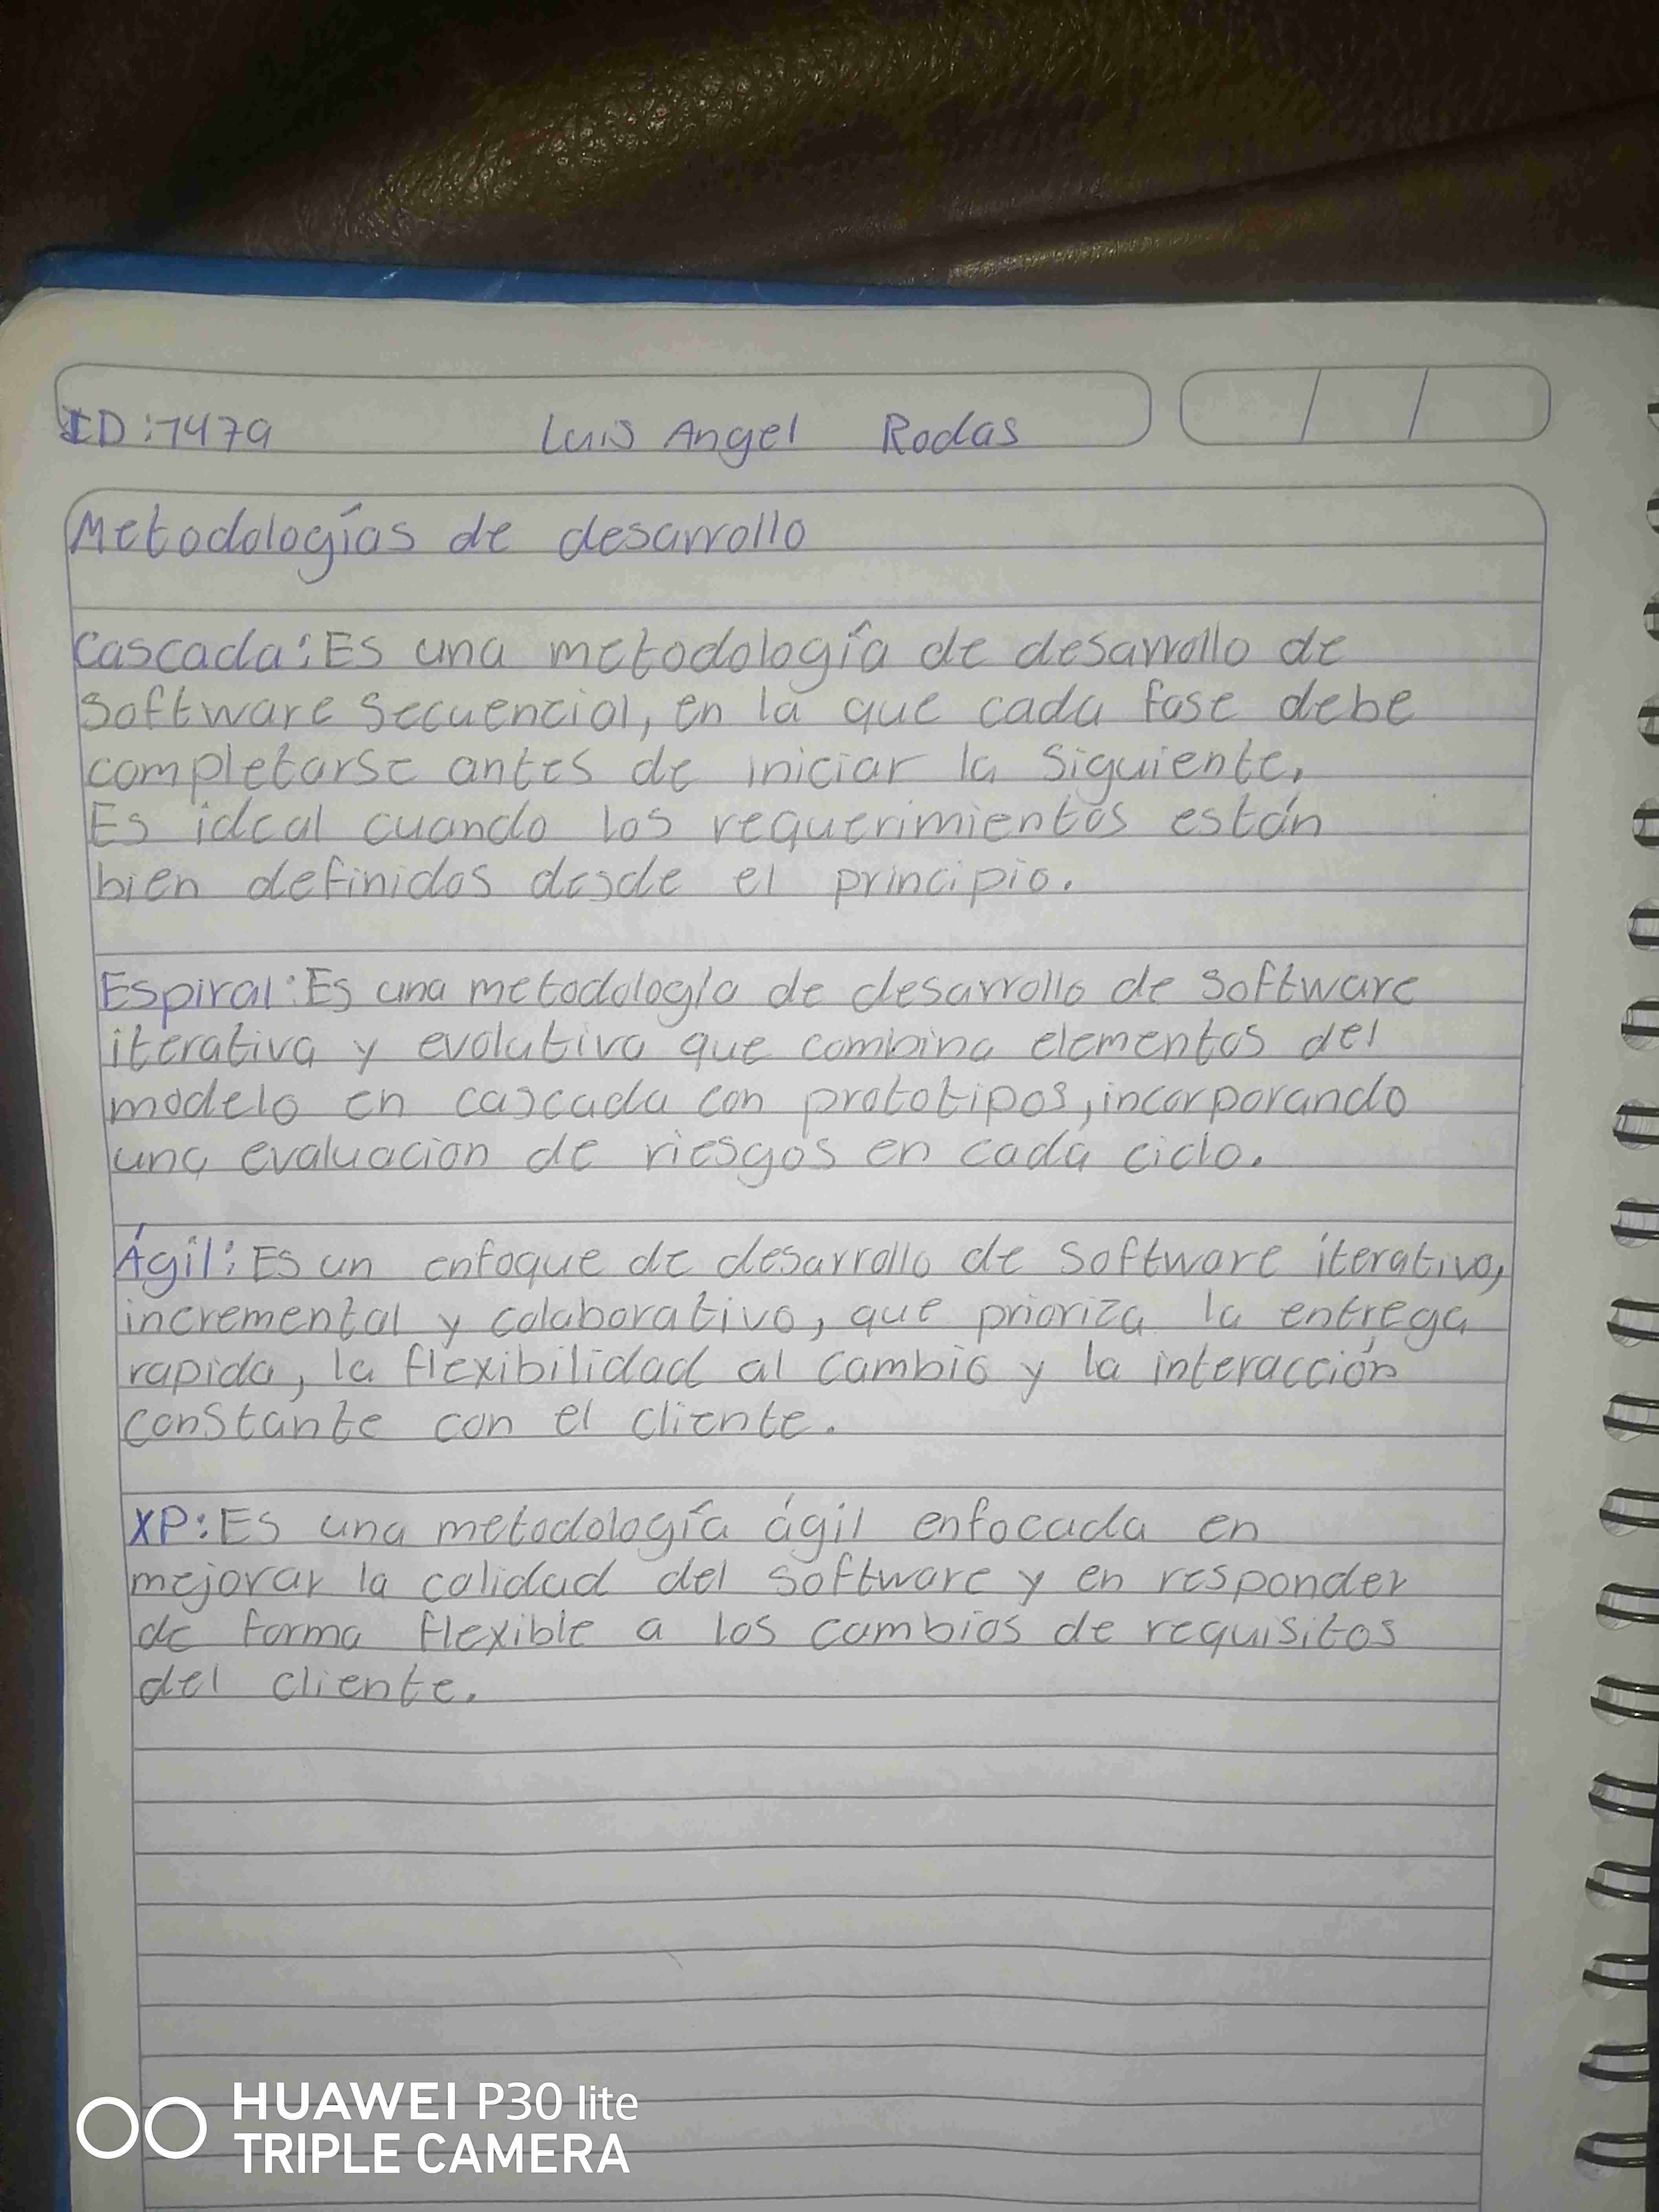 ID:7479 Luis Angel Rodas
Metodologías de desarrollo
Cascada: Es una metodología de desarrollo de
software secuencial, en la que cada fase debe
completarse antes de iniciar la siguiente.
Es ideal cuando los requerimientos están
bien definidos desde el principio.
Espiral: Es una metodología de desarrollo de software
iterativa y evolutiva que combina elementos del
modelo en cascada con prototipos, incorporando
una evaluacion de riesgos en cada ciclo.
Ágil: Es un enfoque de desarrollo de software iterativo,
incremental y colaborativo, que prioriza la entrega
rapida, la flexibilidad al cambio y la interacción
constante con el cliente.
XP: Es una metodología ágil enfocada en
mejorar la calidad del software y en responder
de forma flexible a los cambios de requisitos
del cliente.
HUAWEI P30 lite
TRIPLE CAMERA